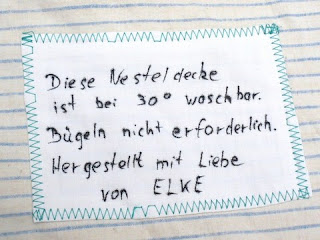 Diese Nesteldecke
ist bei 30° waschbar.
Bügeln nicht erforderlich.
Hergestellt mit Liebe
von ELKE